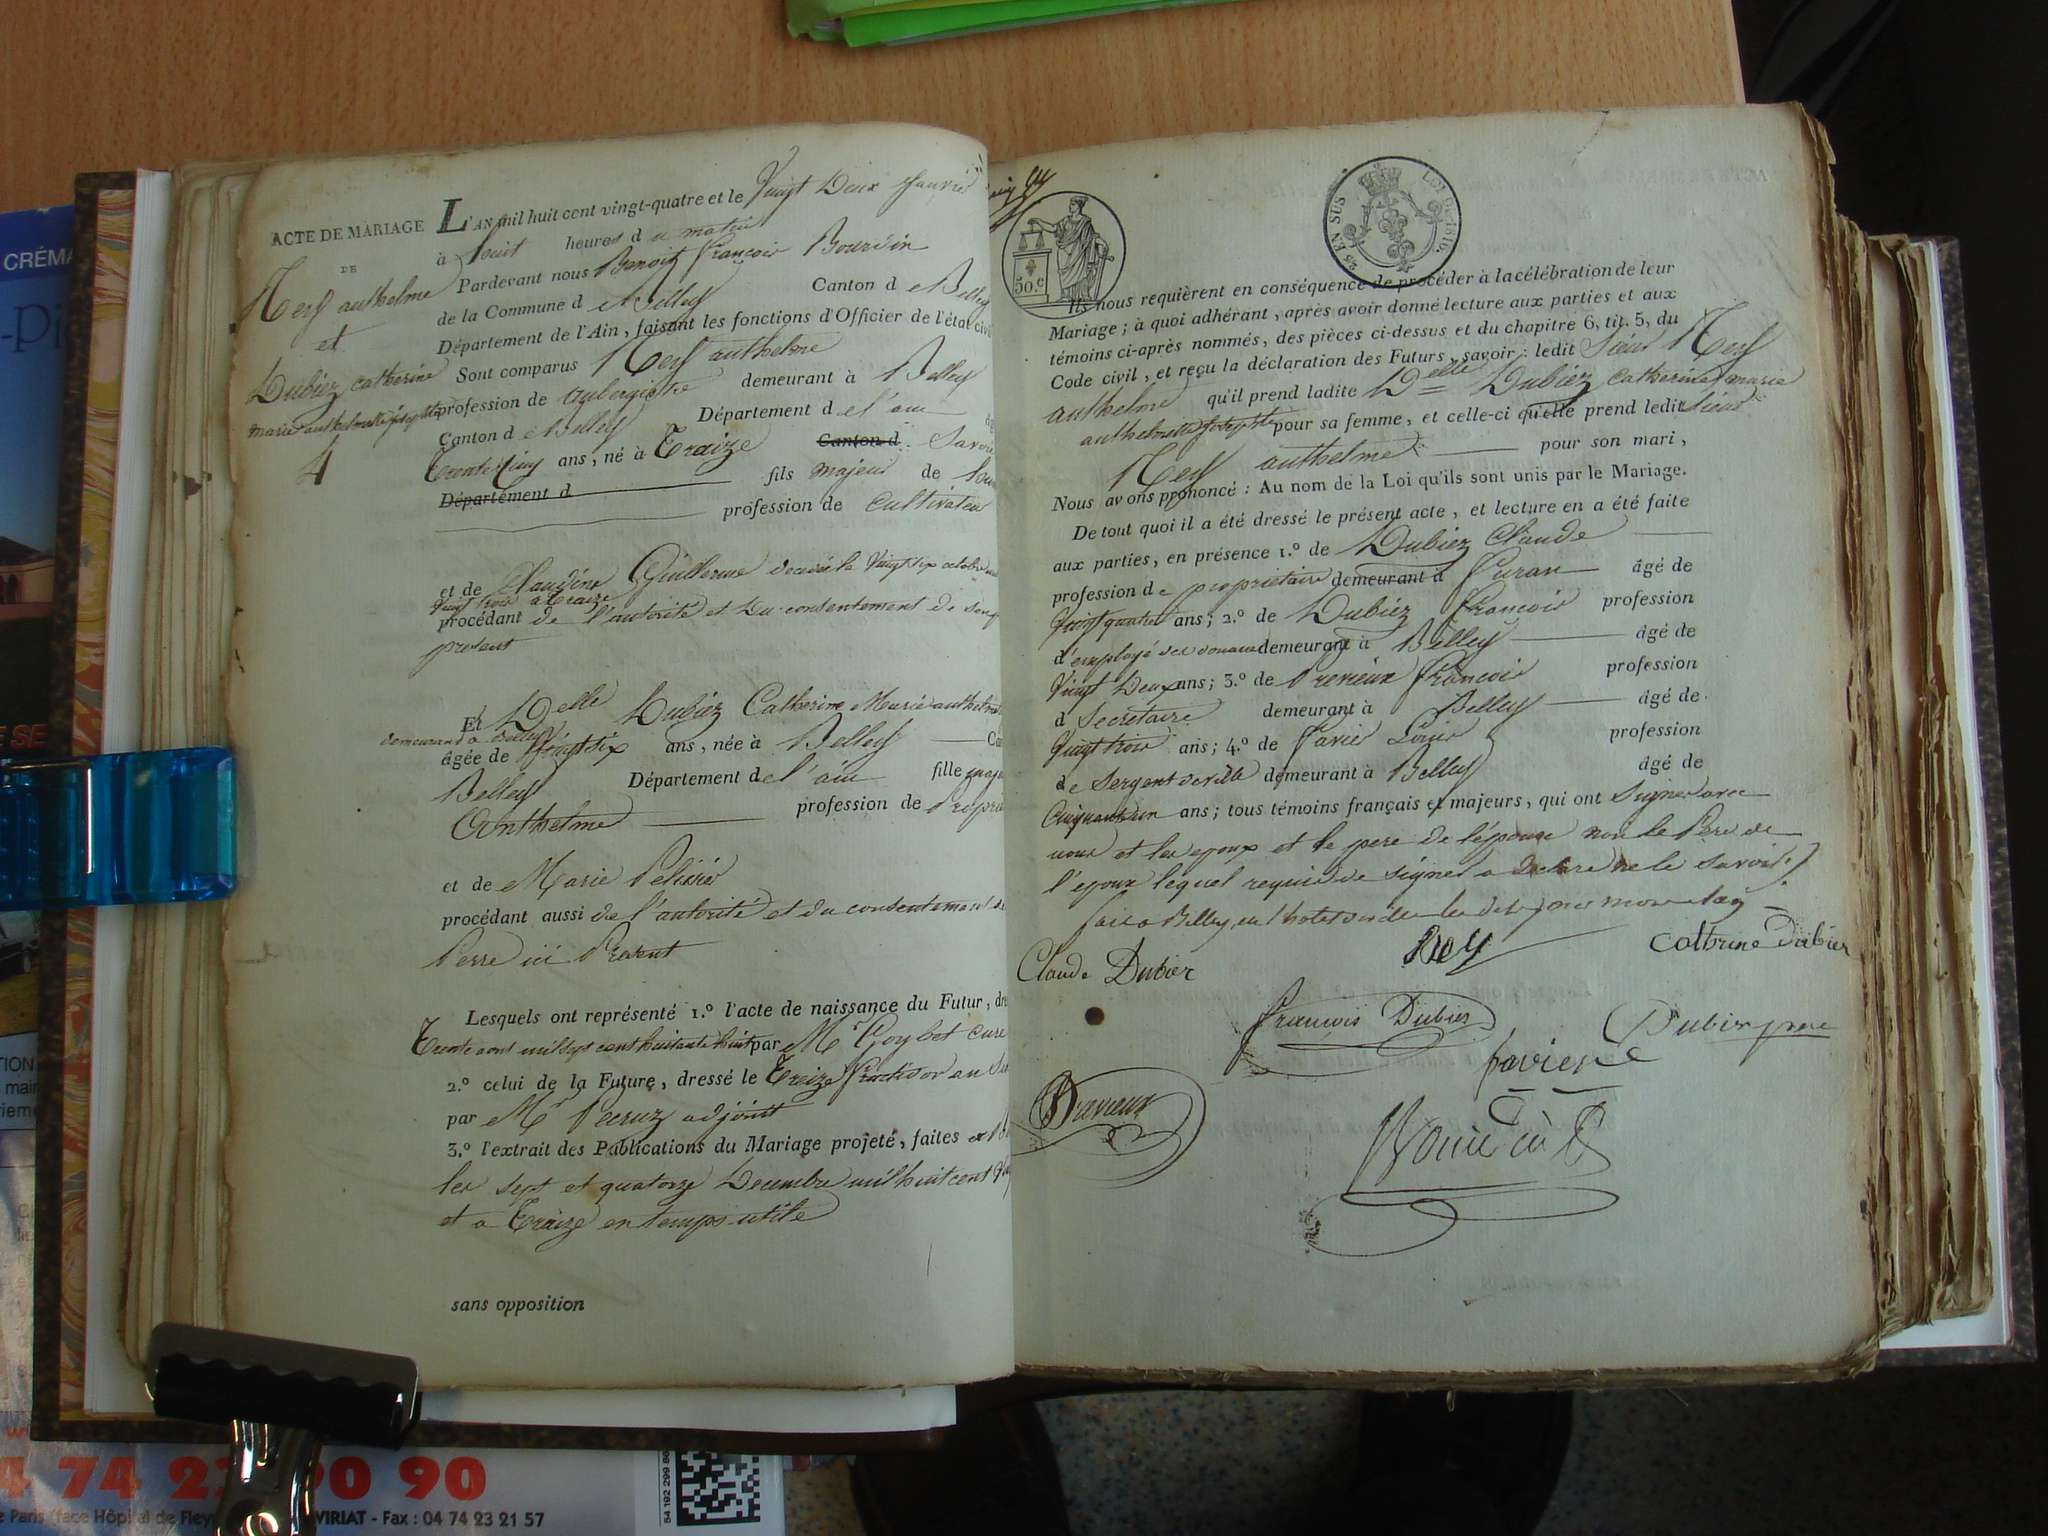 ACTE DE MARIAGE
DE
anthelme
et
Dubiez catherine
marie anthelmette josephte
4
L'AN mil huit cent vingt-quatre et le Vingt Deux Janvier
à huit heures du matin
Pardevant nous Benoit françois
de la Commune de Belley Canton de Belley
Département de l'Ain, faisant les fonctions d'Officier de l'état civil
Sont comparus anthelme
profession de aubergiste demeurant à Belley
Canton de Belley Département de l'ain
trente cinq ans, né à Traize Canton d Savoie
Département d fils majeur de
profession de cultivateur
et de Claudine Guillerme décédée le Vingt six octobre
Vingt trois a traize
procédant de l'autorité et du consentement de
present
Et Delle Dubiez Catherine Marie anthelmette
demeurant a Belley
âgée de Vingt six ans, née à Belley
Belley Département de l'ain fille
Anthelme profession de
et de Marie Pelissier
procédant aussi de l'autorité et du consentement de
Perre ici Présent
Lesquels ont représenté 1.º l'acte de naissance du Futur,
Trente aout mil sept cent huitante huit par Mr Goybet curé
2.º celui de la Future, dressé le Treize fructidor an
par Mr adjoint
3.º l'extrait des Publications du Mariage projeté, faites
les sept et quatorze Decembre mil huit cent
et a Traize en temps utile
sans opposition
50.c
25 EN SUS
LOI DE 1816.
Ils nous requièrent en conséquence de procéder à la célébration de leur
Mariage; à quoi adhérant, après avoir donné lecture aux parties et aux
témoins ci-après nommés, des pièces ci-dessus et du chapitre 6, tit. 5, du
Code civil, et reçu la déclaration des Futurs, savoir: ledit Sieur
anthelme qu'il prend ladite Delle Dubiez catherine marie
anthelmette josephte pour sa femme, et celle-ci qu'elle prend ledit Sieur
anthelme pour son mari,
Nous avons prononcé: Au nom de la Loi qu'ils sont unis par le Mariage.
De tout quoi il a été dressé le présent acte, et lecture en a été faite
aux parties, en présence 1.º de Dubiez Claude
profession de propriétaire demeurant à âgé de
Vingt quatre ans; 2.º de Dubiez francois profession
d'employé des douanes demeurant à Belley âgé de
Vingt Deux ans; 3.º de Previeux francois profession
d Secrétaire demeurant à Belley âgé de
Vingt trois ans; 4.º de Louis profession
de Sergent de ville demeurant à Belley âgé de
Cinquante un ans; tous témoins français et majeurs, qui ont Signer avec
nous et les epoux et le pere de l'épouse non le Pere de
l'epoux lequel requis de signer a declaré ne le savoir
fait a Belley, en l'hotel de ville les dits jours mois et an
Claude Dubier
Catherine Dubier
francois Dubier
Dubier pere
Previeux
4 74 23 90 90
VIRIAT - Fax : 04 74 23 21 57
CRÉMA